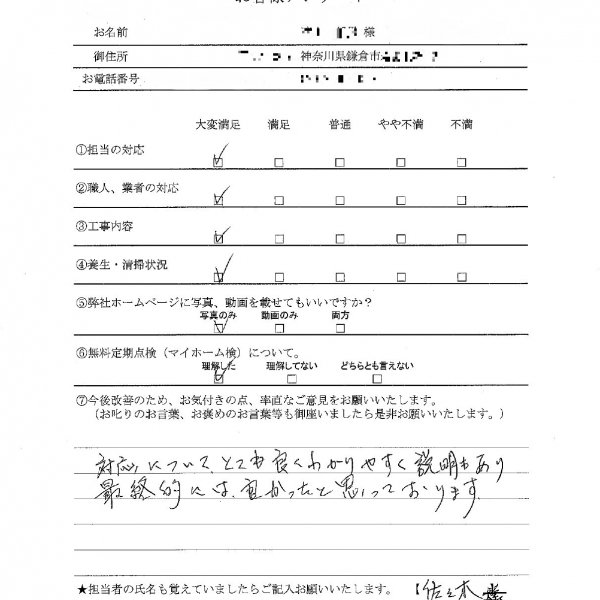 お客様アンケート
お名前 様
御住所 神奈川県鎌倉市
お電話番号
大変満足 満足 普通 やや不満 不満
①担当の対応
②職人、業者の対応
③工事内容
④養生・清掃状況
⑤弊社ホームページに写真、動画を載せてもいいですか？
写真のみ 動画のみ 両方
⑥無料定期点検（マイホーム検）について。
理解した 理解してない どちらとも言えない
⑦今後改善のため、お気付きの点、率直なご意見をお願いいたします。
（お叱りのお言葉、お褒めのお言葉等も御座いましたら是非お願いいたします。）
対応について、とても良くわかりやすく説明もあり
最終的には、良かったと思っております。
★担当者の氏名も覚えていましたらご記入お願いいたします。 佐々木